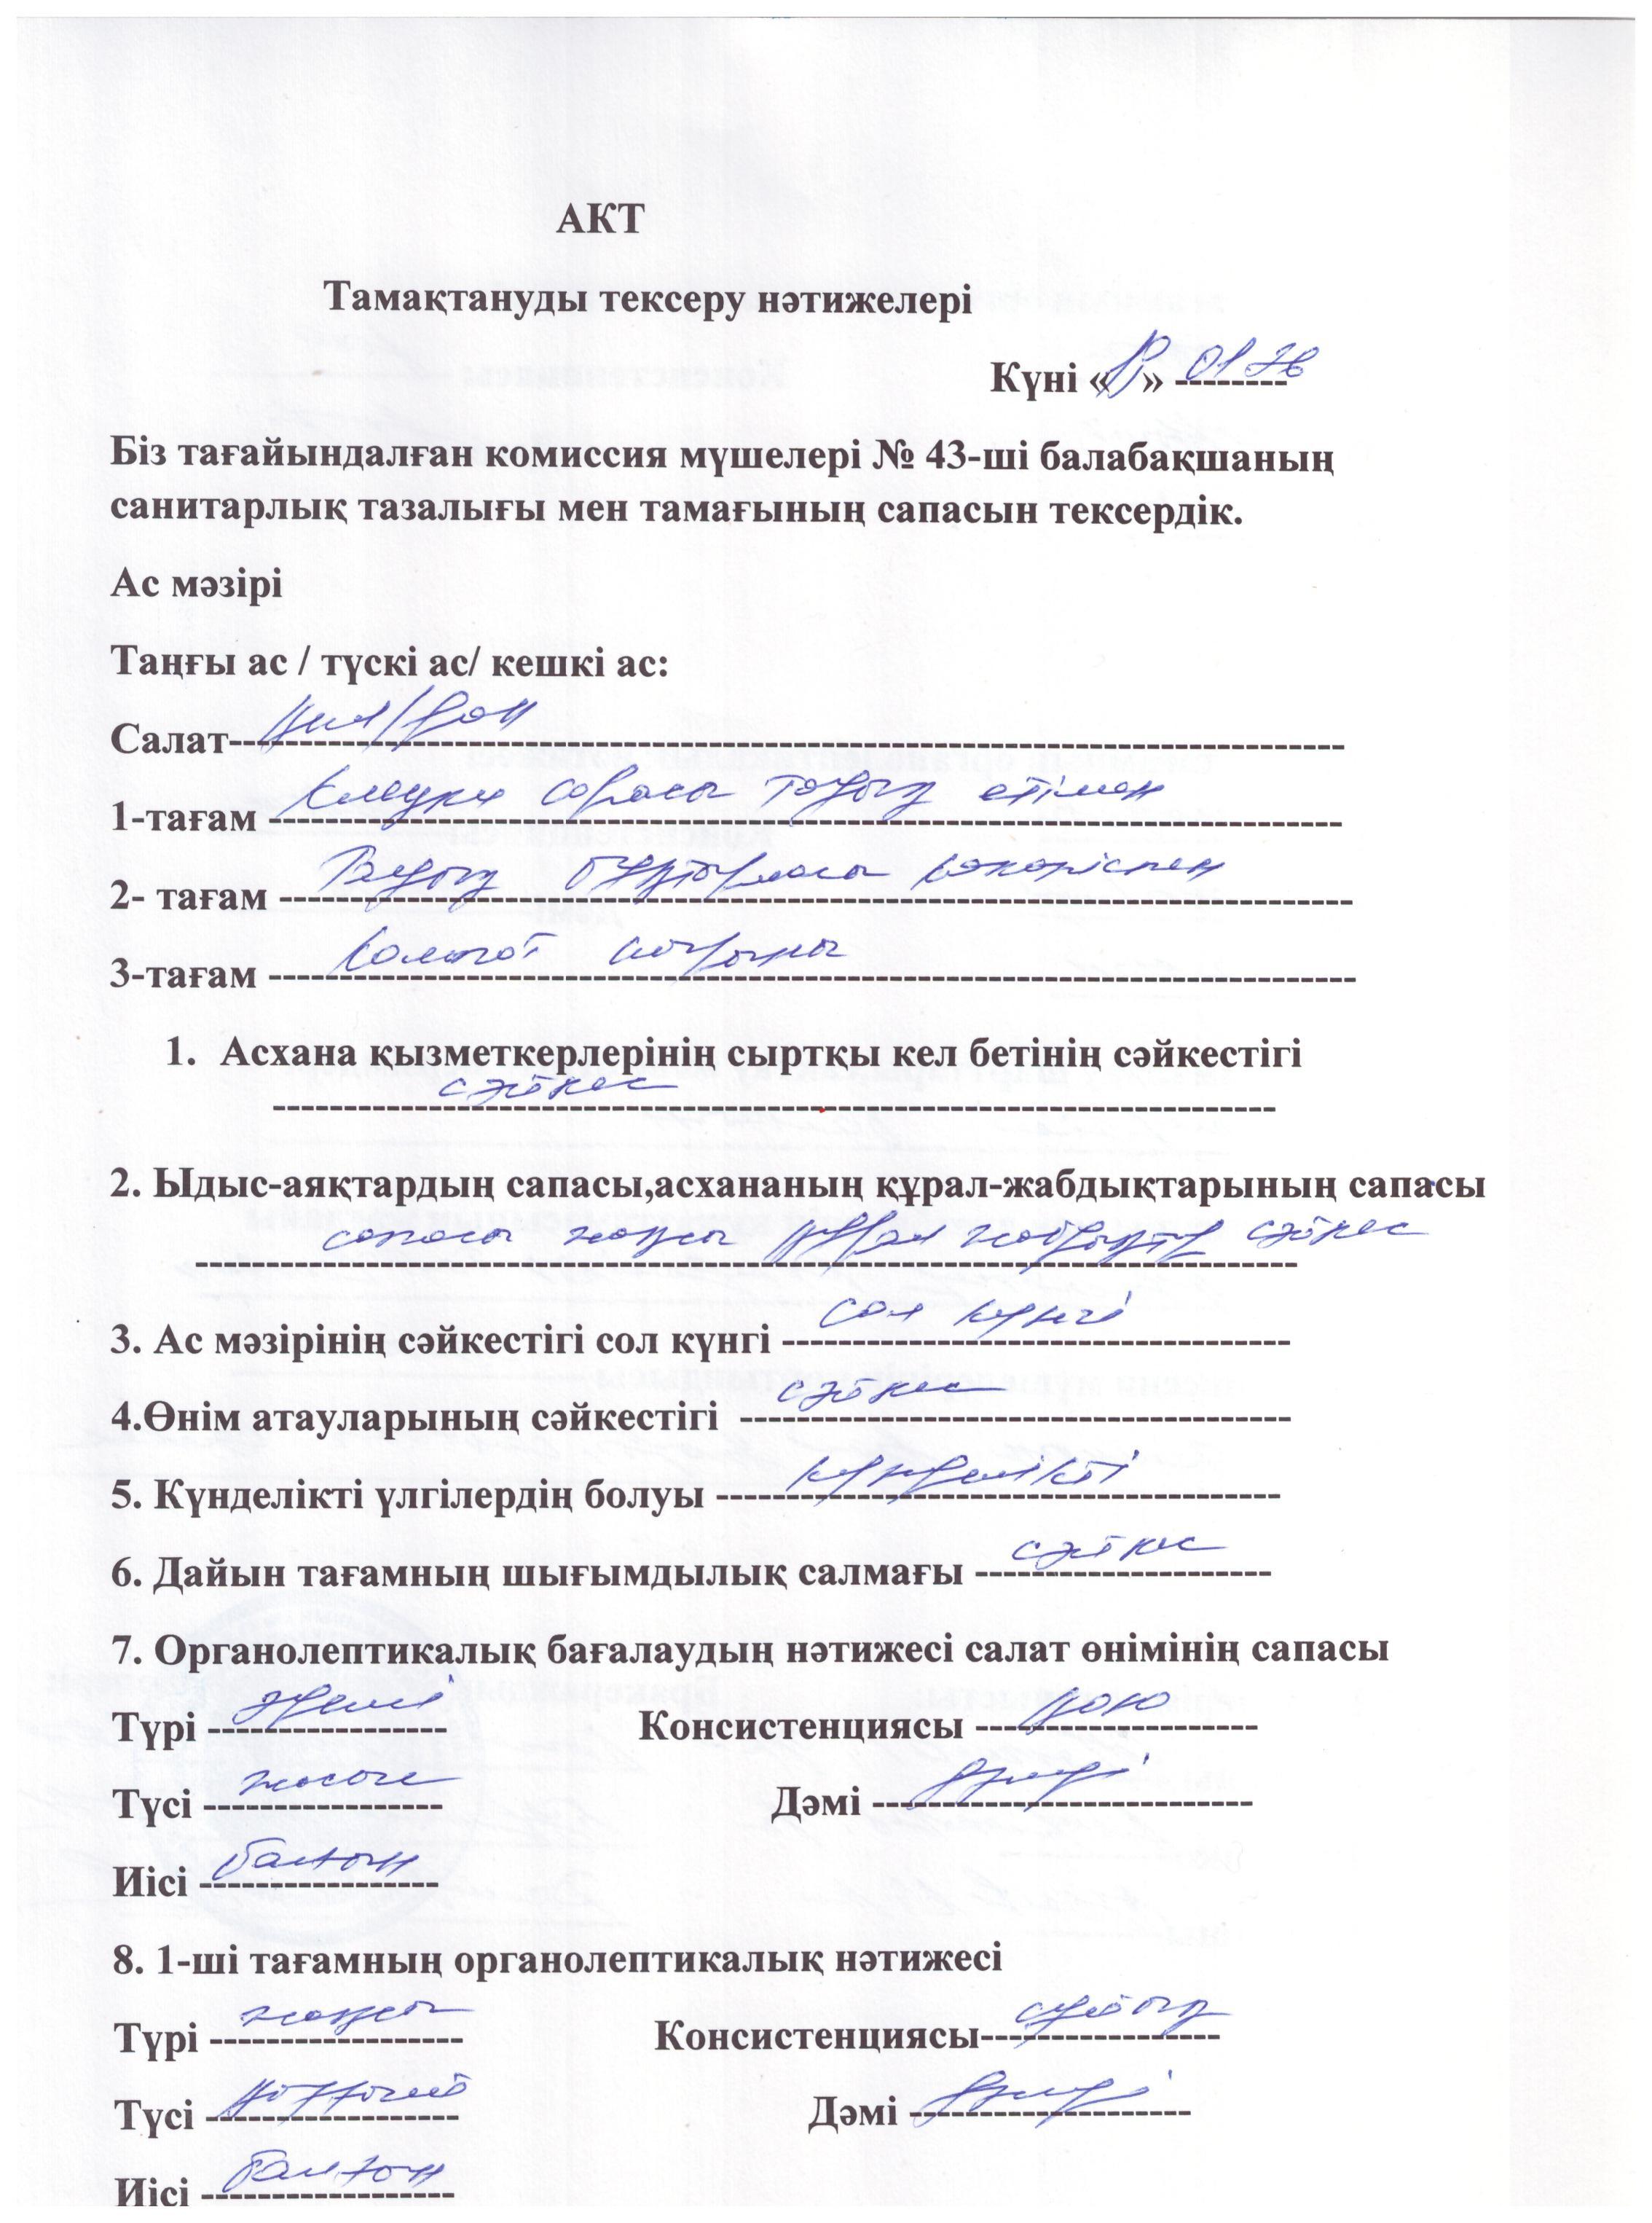 АКТ
Тамақтануды тексеру нәтижелері
Күні « » 01 26
Біз тағайындалған комиссия мүшелері № 43-ші балабақшаның
санитарлық тазалығы мен тамағының сапасын тексердік.
Ас мәзірі
Таңғы ас / түскі ас/ кешкі ас:
Салат
1-тағам сорпасы тауық етімен
2- тағам бұқтырмасы көкөніспен
3-тағам компот
1. Асхана қызметкерлерінің сыртқы кел бетінің сәйкестігі
сәйкес
2. Ыдыс-аяқтардың сапасы,асхананың құрал-жабдықтарының сапасы
сапасы жақсы құрал жабдықтар сәйкес
3. Ас мәзірінің сәйкестігі сол күнгі сол күнгі
4.Өнім атауларының сәйкестігі сәйкес
5. Күнделікті үлгілердің болуы күнделікті
6. Дайын тағамның шығымдылық салмағы сәйкес
7. Органолептикалық бағалаудың нәтижесі салат өнімінің сапасы
Түрі әдемі Консистенциясы қою
Түсі жасыл Дәмі дәмді
Иісі балғын
8. 1-ші тағамның органолептикалық нәтижесі
Түрі жақсы Консистенциясы сұйық
Түсі Дәмі дәмді
Иісі балғын